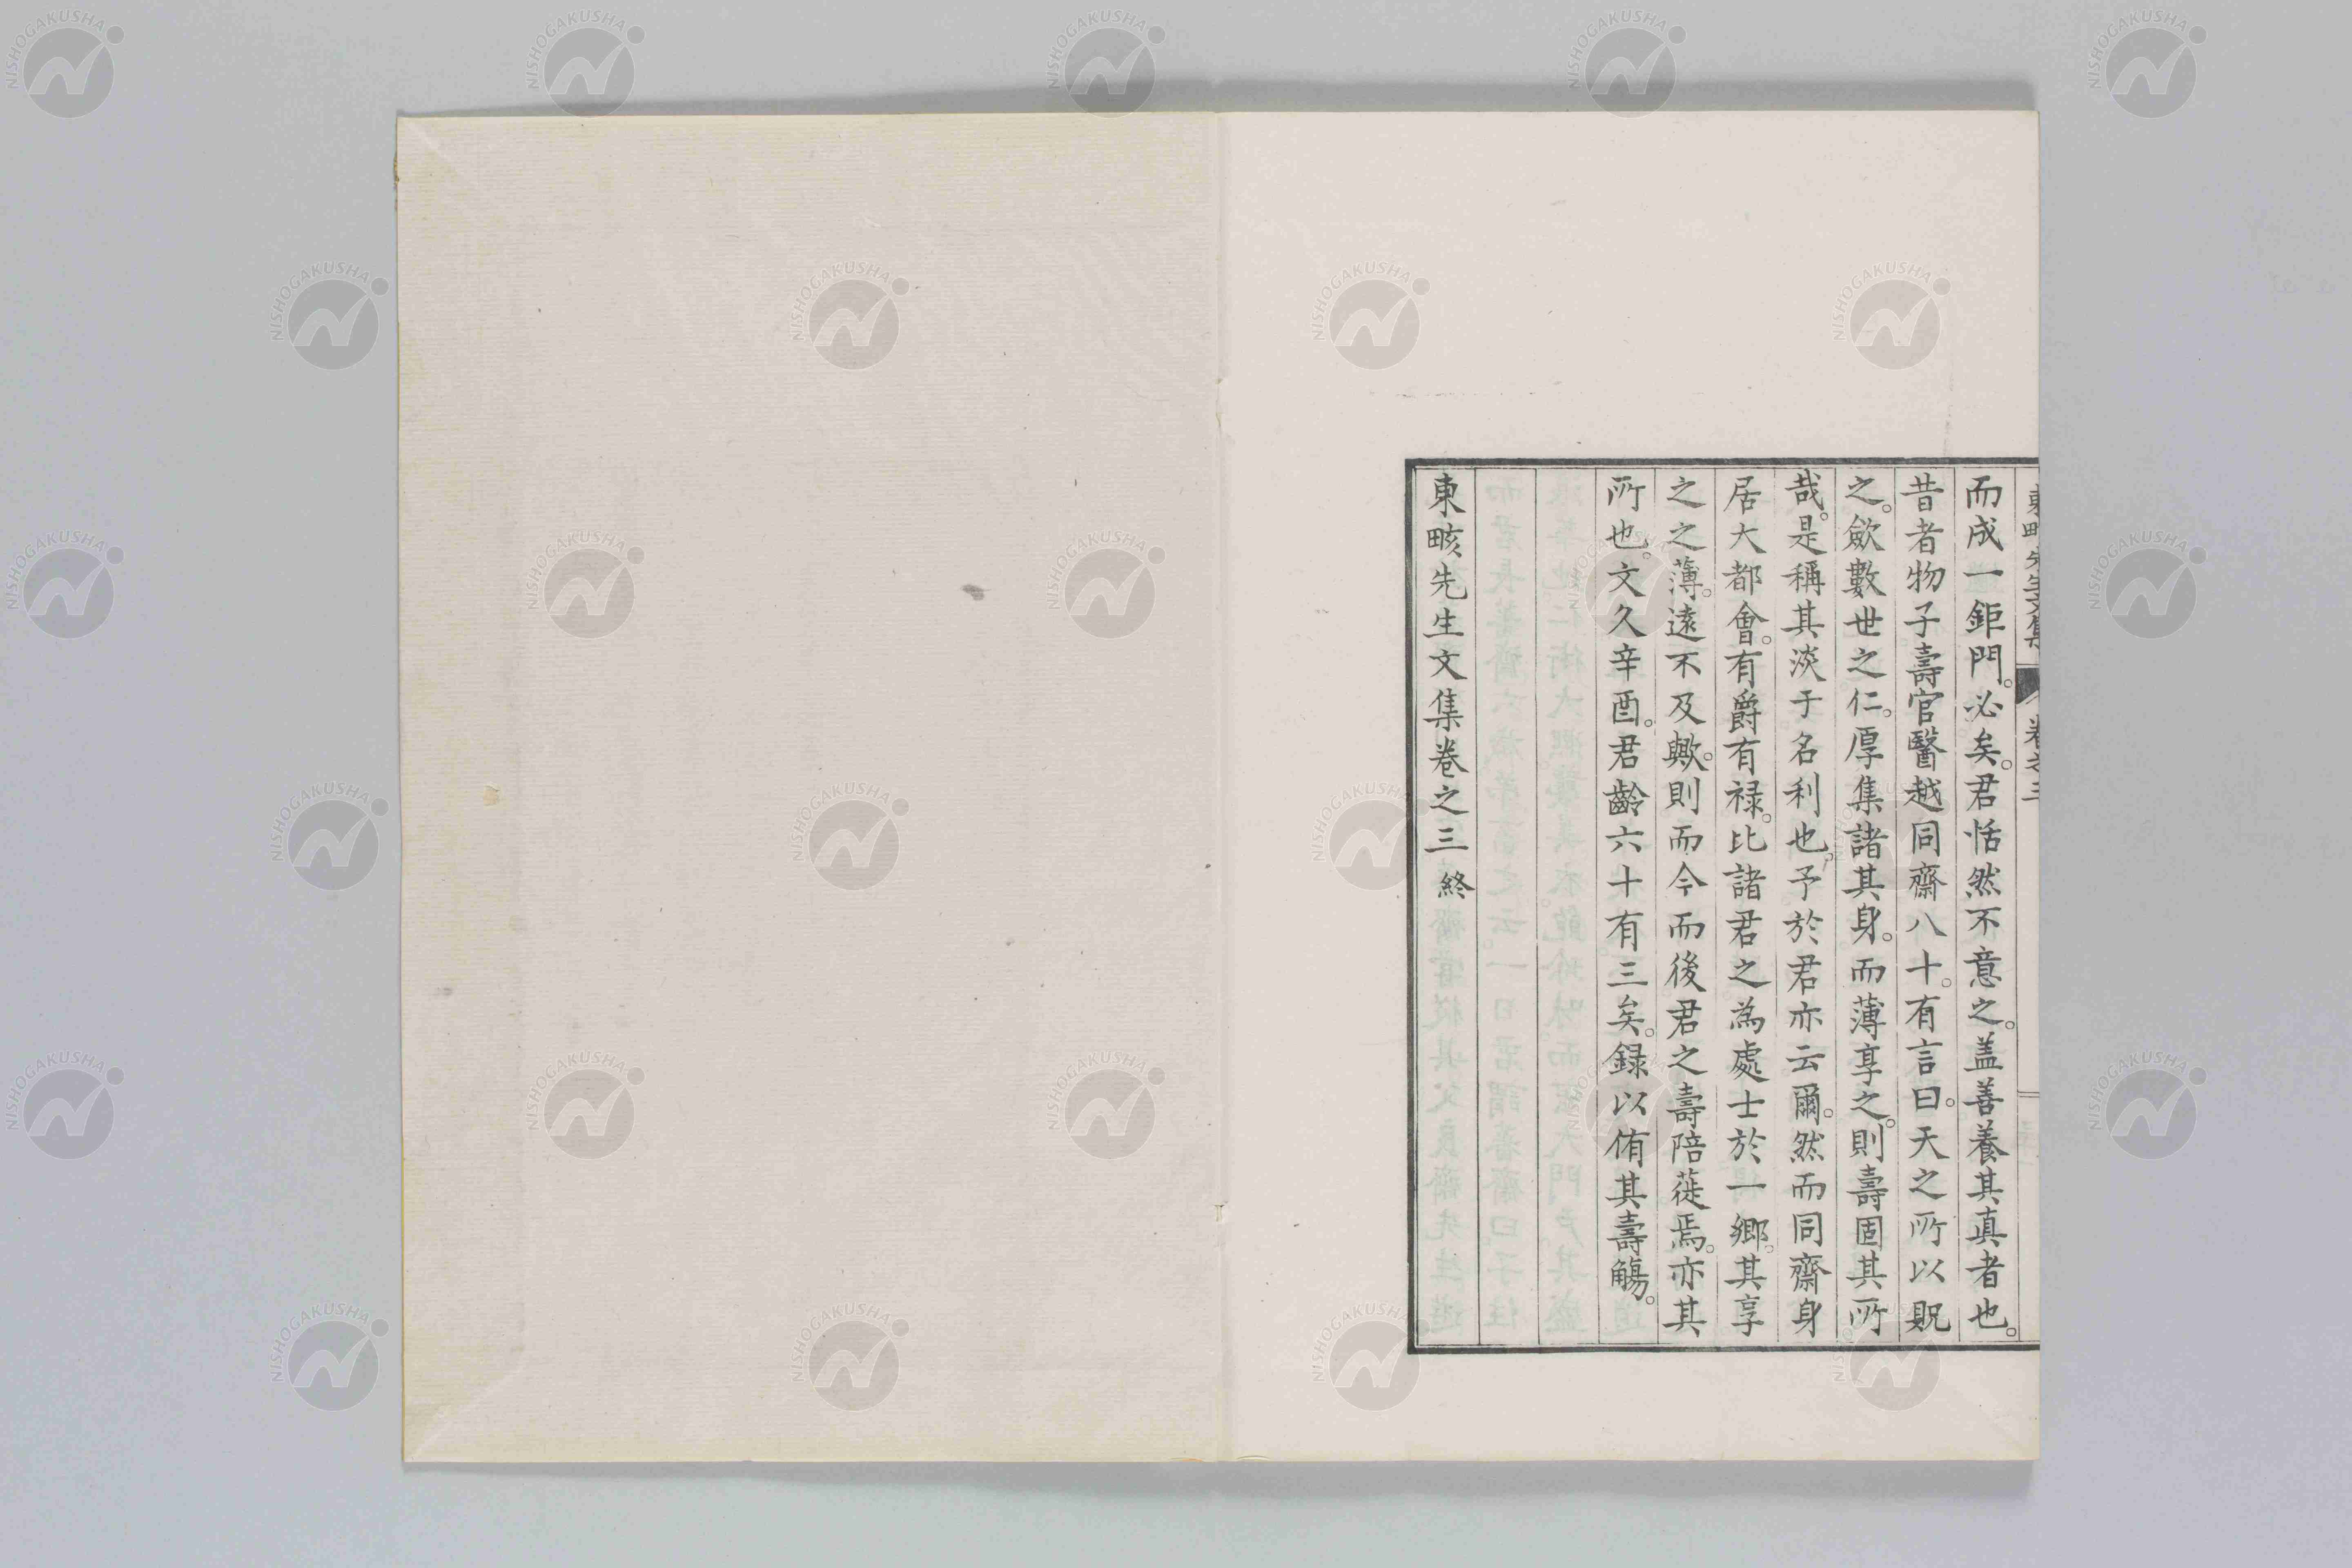 東畡先生文集
卷之三
而成一鉅門。必矣。君恬然不意之。盖善養其真者也。
昔者物子壽官醫越同齋八十。有言曰。天之所以貺
之。歛數世之仁。厚集諸其身。而薄享之。則壽固其所
哉。是稱其淡于名利也。予於君亦云爾。然而同齋身
居大都會。有爵有禄。比諸君之為處士於一鄉。其享
之之薄。遠不及歟。則而今而後君之壽陪蓰焉。亦其
所也。文久辛酉。君齡六十有三矣。録以侑其壽觴。
東畡先生文集卷之三 終
NISHOGAKUSHA